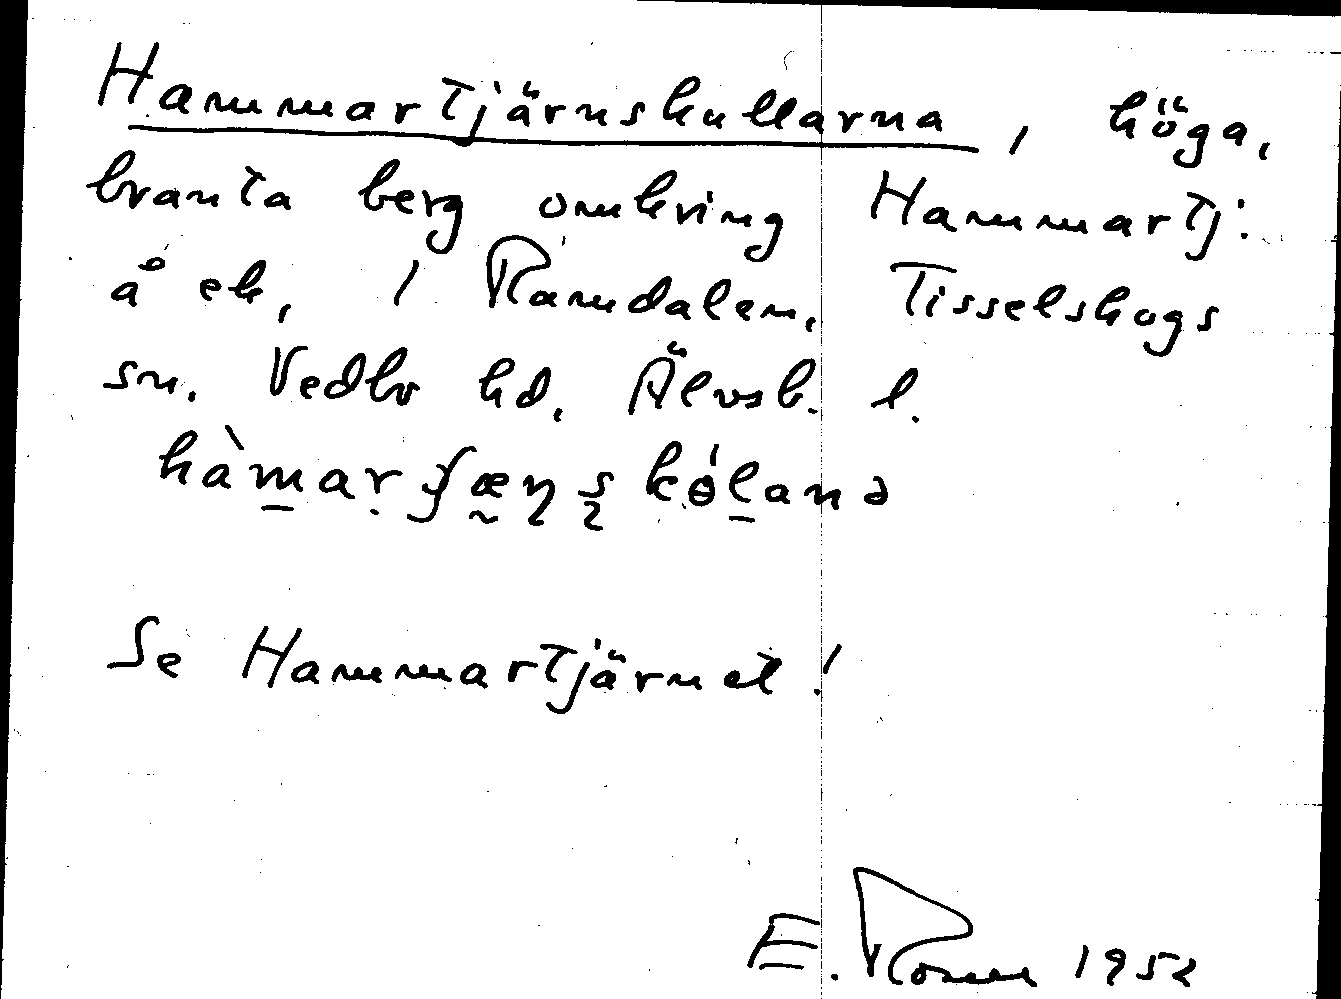 Hammartjärnskullarna, höga,
branta berg omkring Hammartj:
å ek, i Ramdalen, Tisselskogs
sn. Vedbo hd. Älvsb. l.
Se Hammartjärnet!
E. 1952